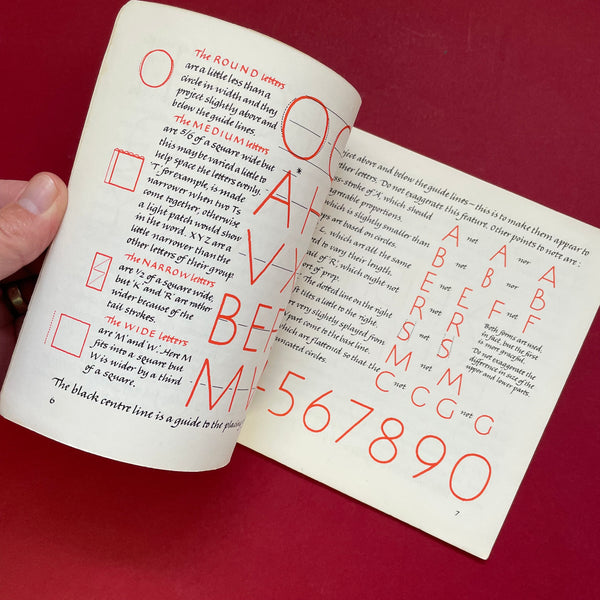 The ROUND letters
are a little less than a
circle in width and they
project slightly above and
below the guide lines.
The MEDIUM letters
are 5/6 of a square wide but
this may be varied a little to
help space the letters evenly.
'T' for example, is made
narrower when two Ts
come together, otherwise
a light patch would show
in the word. X Y Z are a
little narrower than the
other letters of their group.
The NARROW letters
are ½ of a square wide,
but 'K' and 'R' are rather
wider because of the
tail strokes.
The WIDE letters
are 'M' and 'W'. Here M
fits into a square but
W is wider by a third
of a square.
The black centre line is a guide to the placing
6
O
*
A H
V Y
B E F
M
ject above and below the guide lines — this is to make them appear to
ther letters. Do not exaggerate this feature. Other points to note are:
ss-stroke of 'A', which should
agreeable proportions.
which is slightly smaller than
ps are based on circles.
, which are all the same
d to vary their length.
tail of 'R', which ought not
or prop.
The dotted line on the right
ft tilts a little to the right.
are very slightly splayed from
V part come to the base line.
which are flattened so that the
uncated circles.
A not A nor A
B not B nor B
E not E F not F
R not R
S not S
M not M
C not C G not G
Both forms are used,
in fact, but the first
is more graceful.
Do not exaggerate the
difference in size of the
upper and lower parts.
567890
7